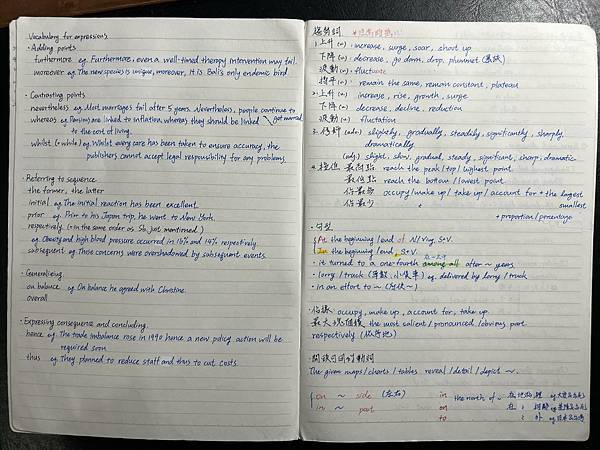 Vocabulary for expressions
· Adding points
furthermore eg. Furthermore, even a well-timed therapy intervention may fail.
moreover eg. The new species is unique, moreover, it is Bali's only endemic bird
· Contrasting points
nevertheless eg. Most marriages fail after 5 years. Nevertheless, people continue to
get married
whereas eg. Pensions are linked to inflation, whereas they should be linked
to the cost of living.
whilst (= while) eg. Whilst every care has been taken to ensure accuracy, the
publishers cannot accept legal responsibility for any problems.
· Referring to sequence
the former, the latter
initial eg. The initial reaction has been excellent.
prior eg. Prior to his Japan trip, he went to New York.
respectively (= in the same order as Sb. just mentioned)
eg. Obesity and high blood pressure occurred in 16% and 14% respectively.
subsequent eg. Those concerns were overshadowed by subsequent events.
· Generalising
on balance eg. On balance he agreed with Christine.
overall
· Expressing consequence and concluding.
hence eg. The trade imbalance rose in 1990 hence a new policy action will be
required soon
thus eg. They planned to reduce staff and thus to cut costs.
1. 上升 (v.) : increase, surge, soar, shoot up
下降 (v.) : decrease, go down, drop, plummet
波動 (v.) : fluctuate
持平 (v.) : remain the same, remain constant, plateau
2. 上升 (n.) increase, rise, growth, surge
下降 (n.) decrease, decline, reduction
波動 (n.) fluctation
3. (adv.) slightly, gradually, steadily, significantly, sharply,
dramatically
(adj.) slight, slow, gradual, steady, significant, sharp, dramatic
4. 極值 最高點 reach the peak / top / highest point
最低點 reach the bottom / lowest point
佔最多 occupy / make up / take up / account for + the largest
佔最少 + smallest
+ proportion / percentage
· 句型
At the beginning / end of N / Ving, S+V.
In the beginning / end, S+V.
· it turned to a one-fourth among all after ~ years
· lorry / truck eg. delivered by lorry / truck
· in an effort to ~
occupy, make up, account for, take up
the most salient / pronounced / obvious part
respectively
The given maps / charts / tables reveal / detail / depict ~.
on ~ side (左右) in the north of ~
in ~ part on
to